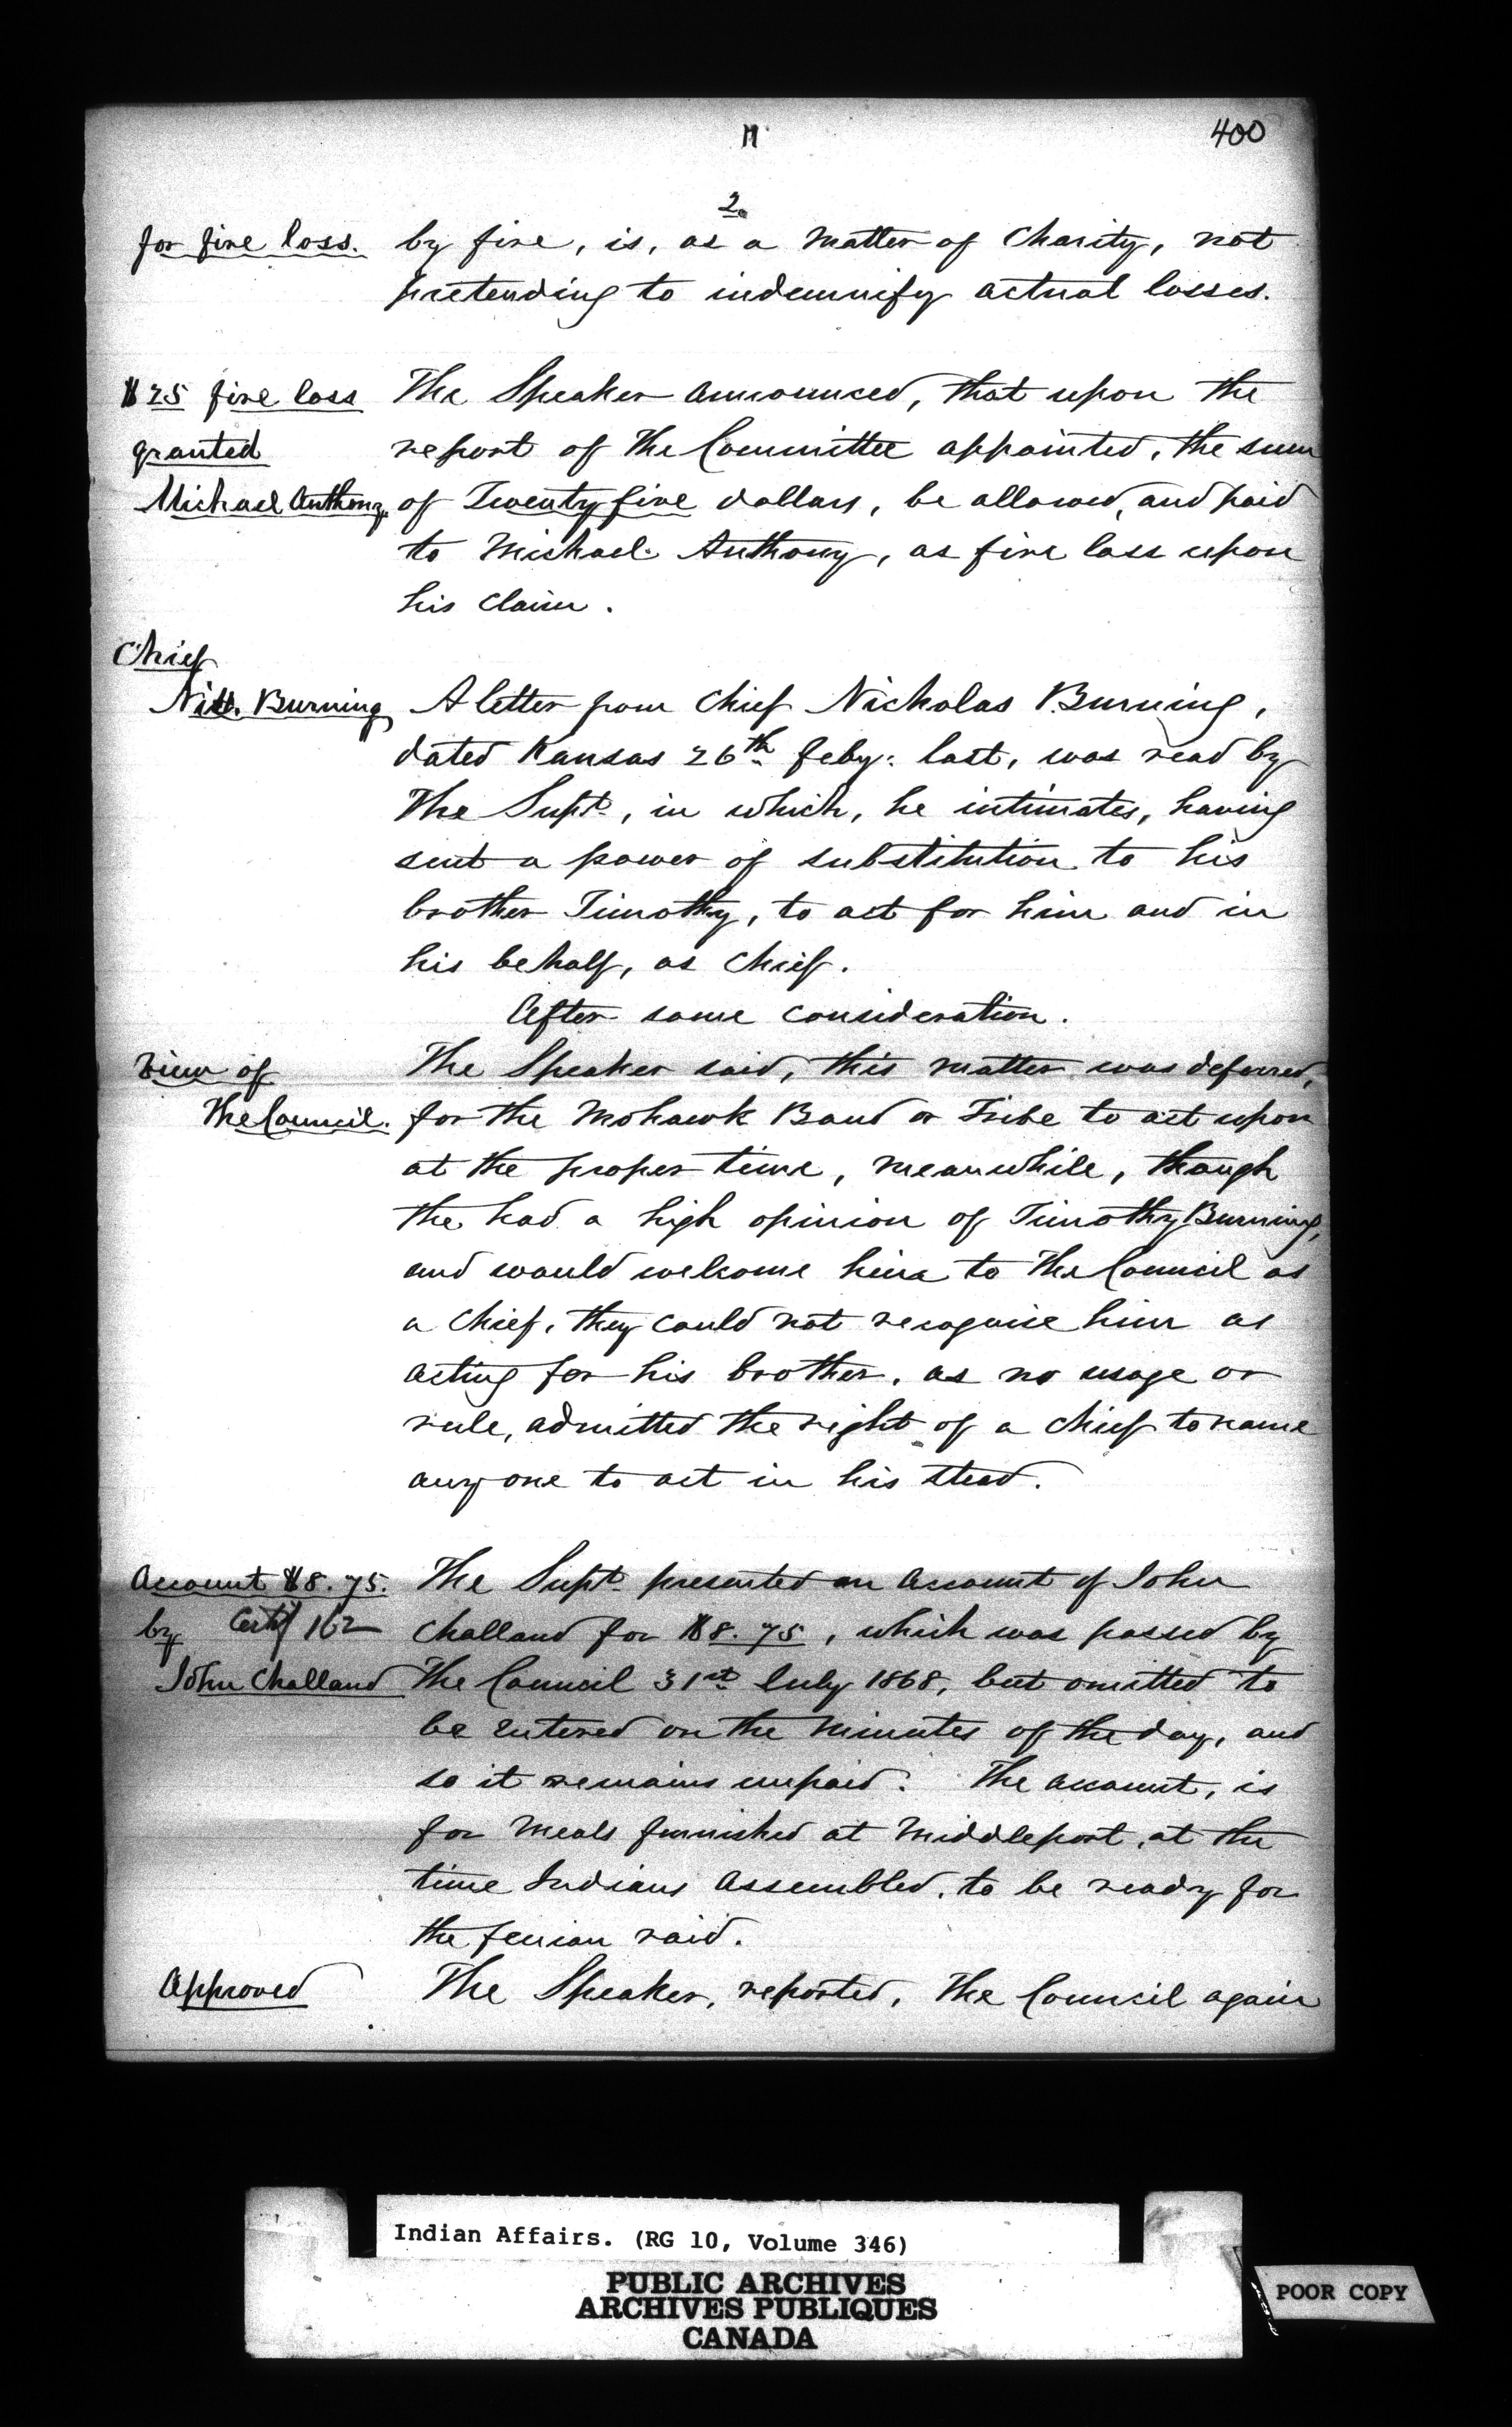 11
400
2.
for fire loss.
by fire, is, as a matter of Charity, not
pretending to indemnify actual losses.
$25 fire loss
granted
Michael Anthony.
The Speaker announced, that upon the
report of the Committee appointed, the sum
of Twenty five dollars, be allowed, and paid
to Michael Anthony, as fire loss upon
his claim.
Chief
Burning
A letter from Chief Nicholas Burning,
dated Kansas 26th Feby: last, was read by
The Supt., in which, he intimates, having
sent a power of substitution to his
brother Timothy, to act for him and in
his behalf, as Chief.
After some consideration.
View of
The Council.
The Speaker said, this matter was deferred,
for the Mohawk Band or Tribe to act upon
at the proper time, meanwhile, though
the had a high opinion of Timothy Burning,
and would welcome him to the Council as
a Chief, they could not recognise him as
acting for his brother, as no usage or
rule, admitted the right of a Chief to name
any one to act in his stead.
Account $8.75.
by Certf 162
John Challand
The Supt. presented an Account of John
Challand for $8.75, which was passed by
the Council 31st July 1868, but omitted to
be entered on the Minutes of the day, and
so it remains unpaid. The account, is
for Meals furnished at Middleport, at the
time Indians Assembled, to be ready for
the fenian raid.
Approved
The Speaker, reported, the Council again
Indian Affairs. (RG 10, Volume 346)
PUBLIC ARCHIVES
ARCHIVES PUBLIQUES
CANADA
POOR COPY